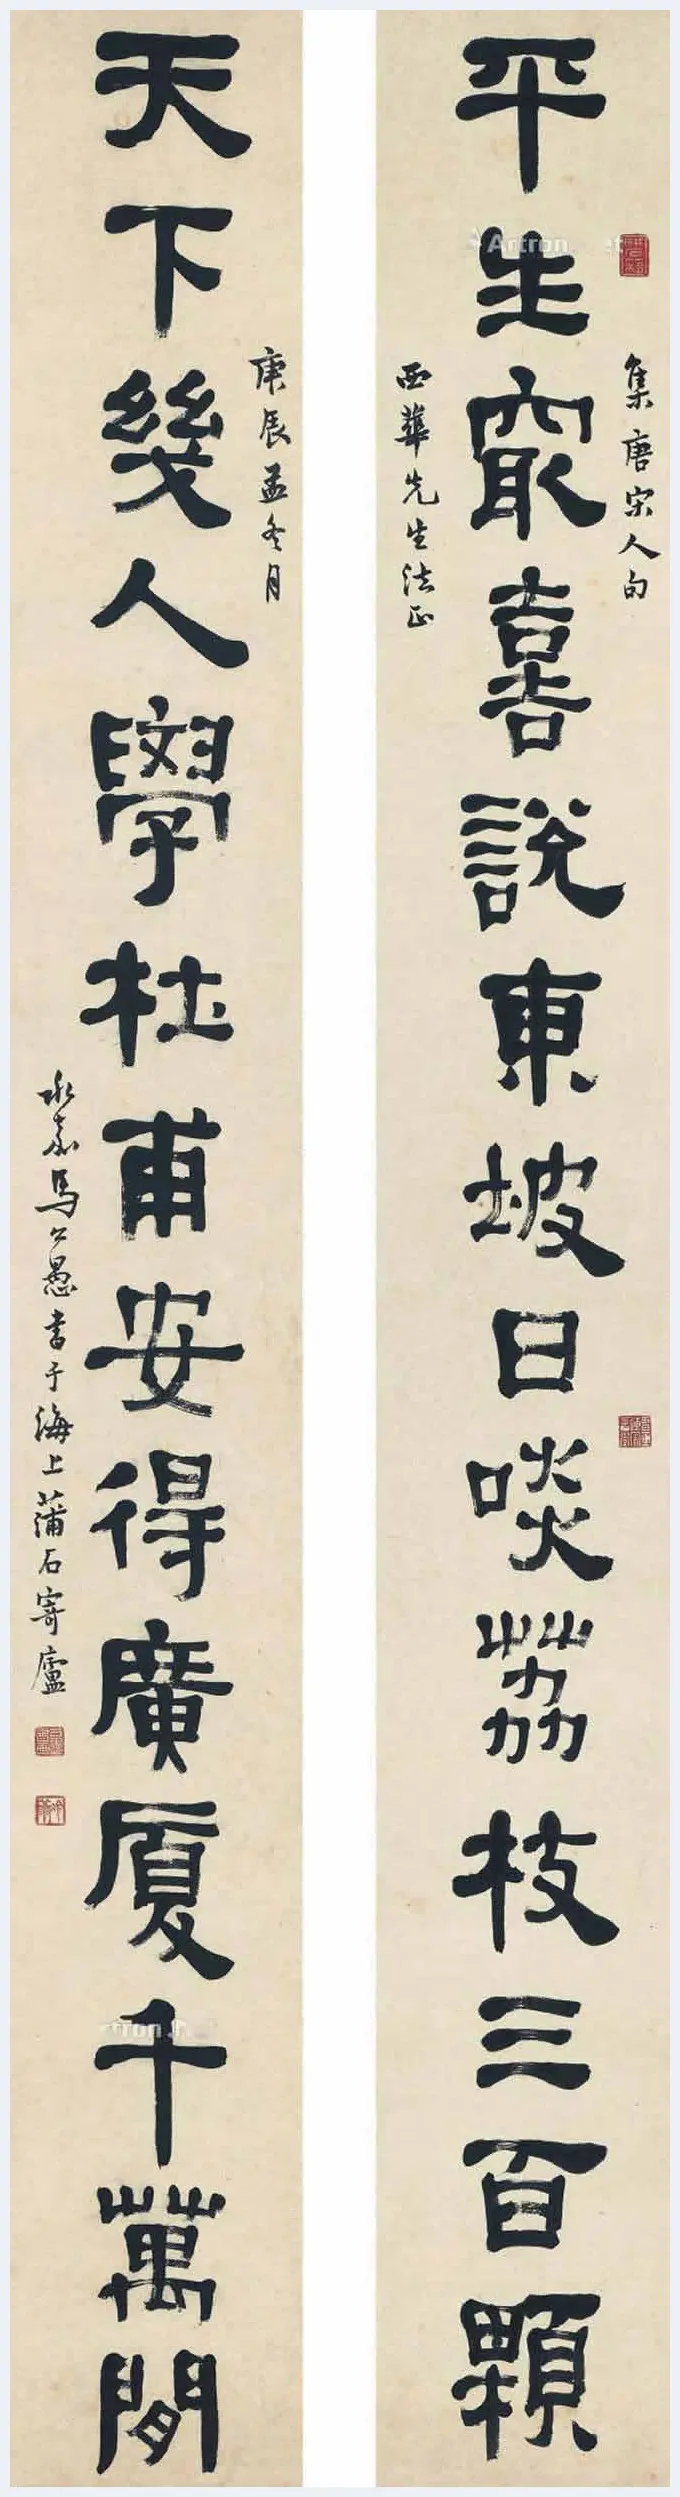 集唐宋人句
平生最喜說東坡日啖荔枝三百顆
西華先生法正
庚辰孟冬月
天下幾人學杜甫安得廣厦千萬間
永嘉馬公愚書于海上蒲石寄廬
Artron